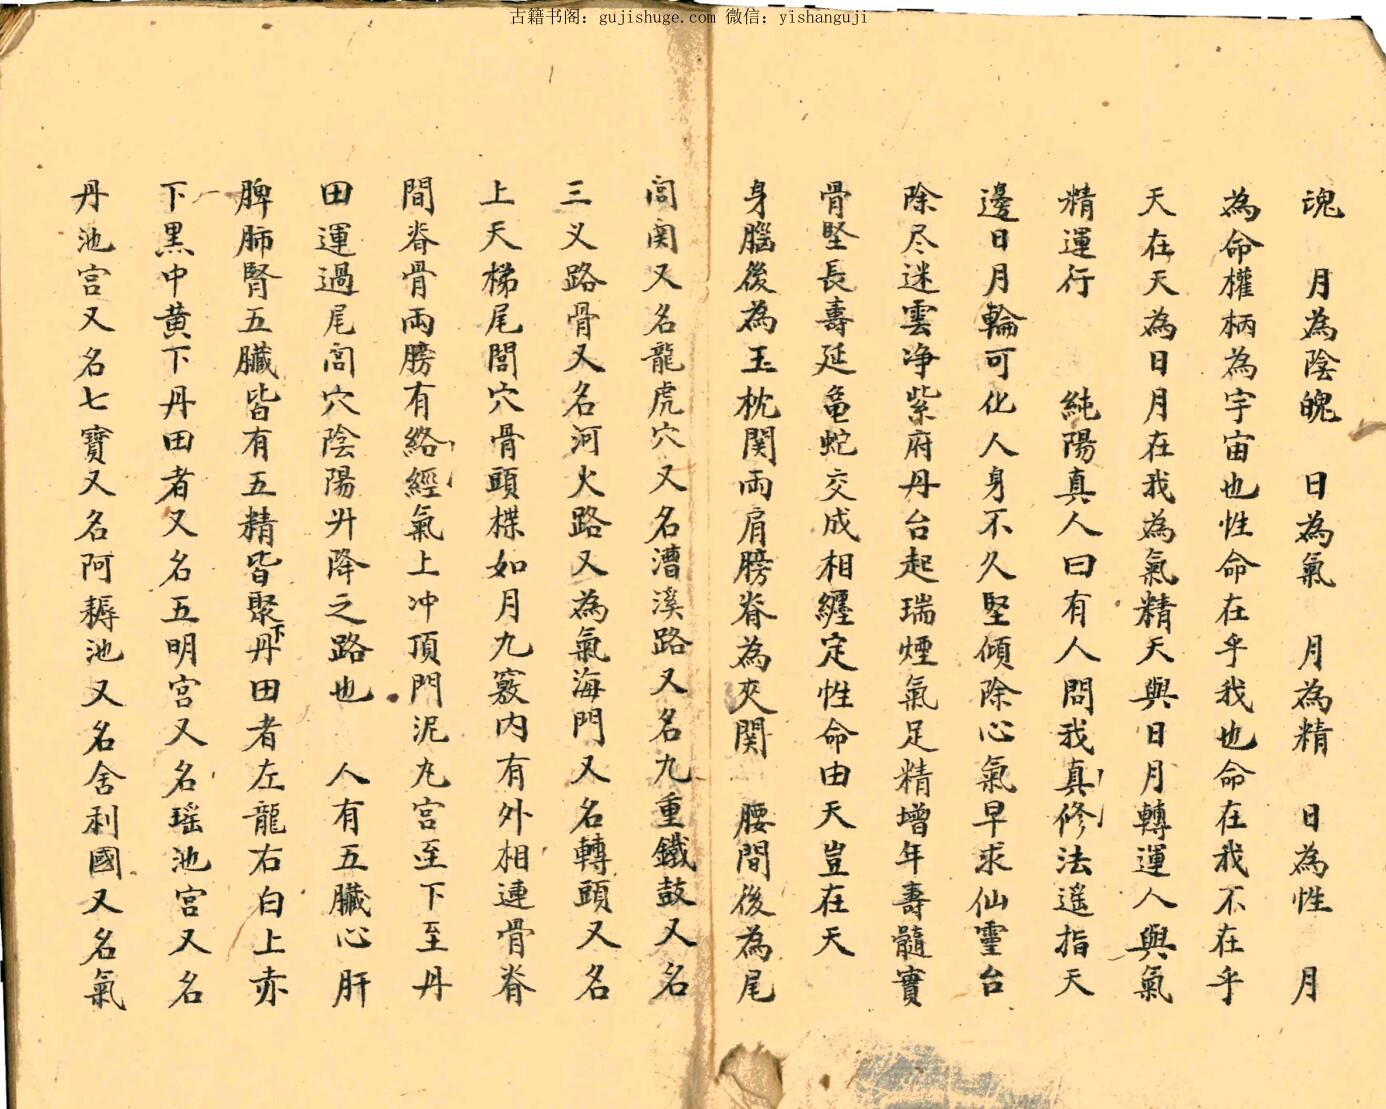 古籍书阁：gujishuge.com 微信：yishanguji
魂　月為陰魄　日為氣　月為精　日為性　月
為命權柄為宇宙也性命在乎我也命在我不在乎
天在天為日月在我為氣精天與日月轉運人與氣
精運行　純陽真人曰有人問我真修法遥指天
邊日月輪可化人身不久堅傾除心氣早求仙靈台
除尽迷雲净紫府丹台起瑞煙氣足精增年壽髓實
骨堅長壽延龜蛇交成相纏定性命由天豈在天
身腦後為玉枕関両肩膀脊為夾関　腰間後為尾
閭関又名龍虎穴又名漕溪路又名九重鐵鼓又名
三义路骨又名河火路又為氣海門又名轉頭又名
上天梯尾閭穴骨頭楪如月九竅内有外相連骨脊
間脊骨両膀有絡經氣上冲頂門泥丸宫至下至丹
田運過尾閭穴陰陽升降之路也　人有五臟心肝
脾肺腎五臟皆有五精皆聚下丹田者左龍右白上赤
下黑中黄下丹田者又名五明宫又名瑶池宫又名
丹池宫又名七寶又名阿耨池又名舍利國又名氣